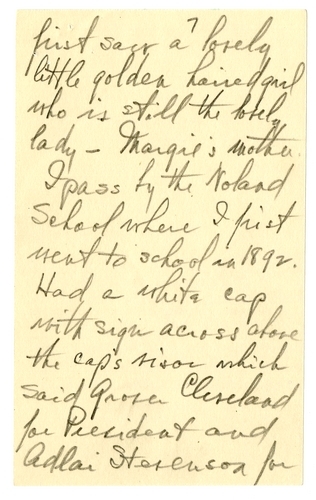 7
first saw a lovely
little golden haired girl
who is still the lovely
lady – Margie's mother.
I pass by the Noland
School where I first
went to school in 1892.
Had a white cap
with sign across above
the cap's visor which
said Grover Cleveland
for President and
Adlai Stevenson for